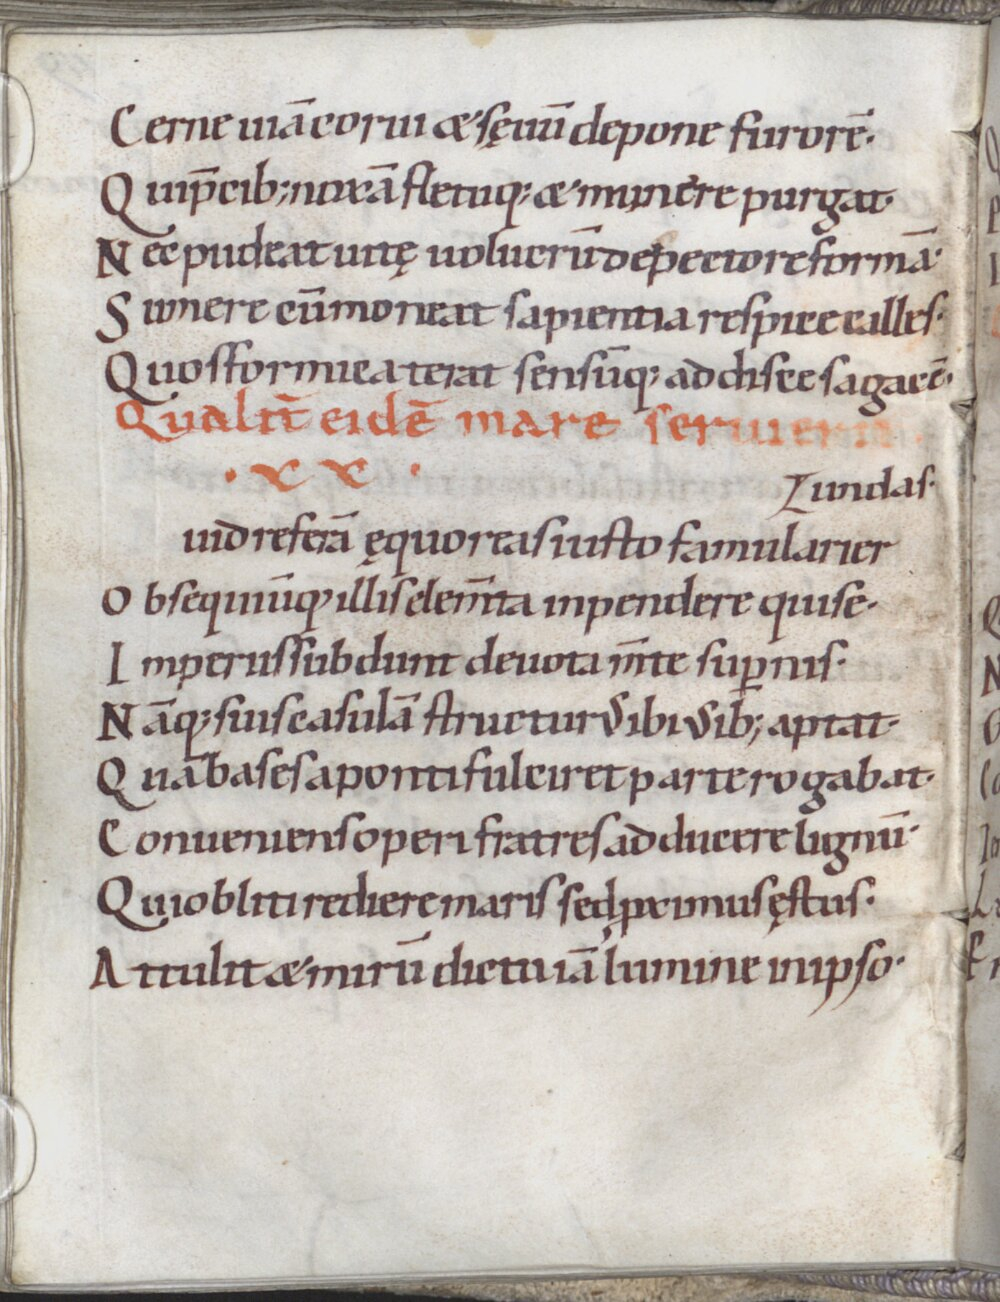 Cerne uiā corui & sęuū depone furorē·
Qui p̄cib; noxā fletuq; & munere purgat·
Nec pudeat uitę uolucrū de pectore formā·
Sumere cū moneat sapientia respice calles·
Quos formica terat sensūq; addisce sagacē·
Qualit̄ eidē mare seruierit·
·XX·
undas·
uid referā ęquoreas iusto famularier
Obsequiūq; illis elem̄ta inpendere qui se·
Imperiis subdunt deuota m̄te supnis·
Nāq; suis casulā structur & ibi & ib; aptat·
Quā bases a ponti fulciret parte rogabat·
Conueniens operi fratres adducere lignū·
Qui obliti rediere maris sed proximus ęstus·
Attulit & mirū dictu iā lumine in ipso·